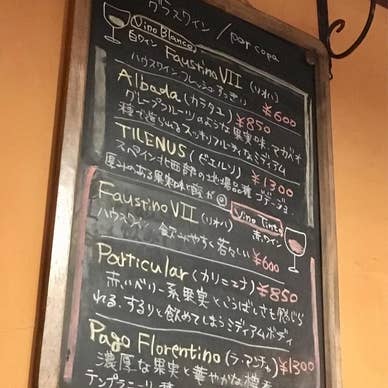 グラスワイン / por copa
Vino Blanco
白ワイン Faustino VII (リオハ)
ハウスワイン フレッシュすっきり ¥600
Albada (カラタユ) ¥850
グレープフルーツのような果実味、マカベオ
種で造られるスッキリフルーティなミディアム
TILENUS (ビエルソ) ¥1300
スペイン北西部の土地品種 ゴデージョ
厚みのある果実味と酸が◎
Vino Tinto
Faustino VII (リオハ) 赤ワイン
ハウスワイン 飲みやすく若々しい ¥600
Particular (カリニェナ) ¥850
赤いベリー系果実とこうばしさを感じら
れる、するりと飲めてしまうミディアムボディ
Pago Florentino (ラ・マンチャ) ¥1300
濃厚な果実と華やかな
テンプラニーリョ種